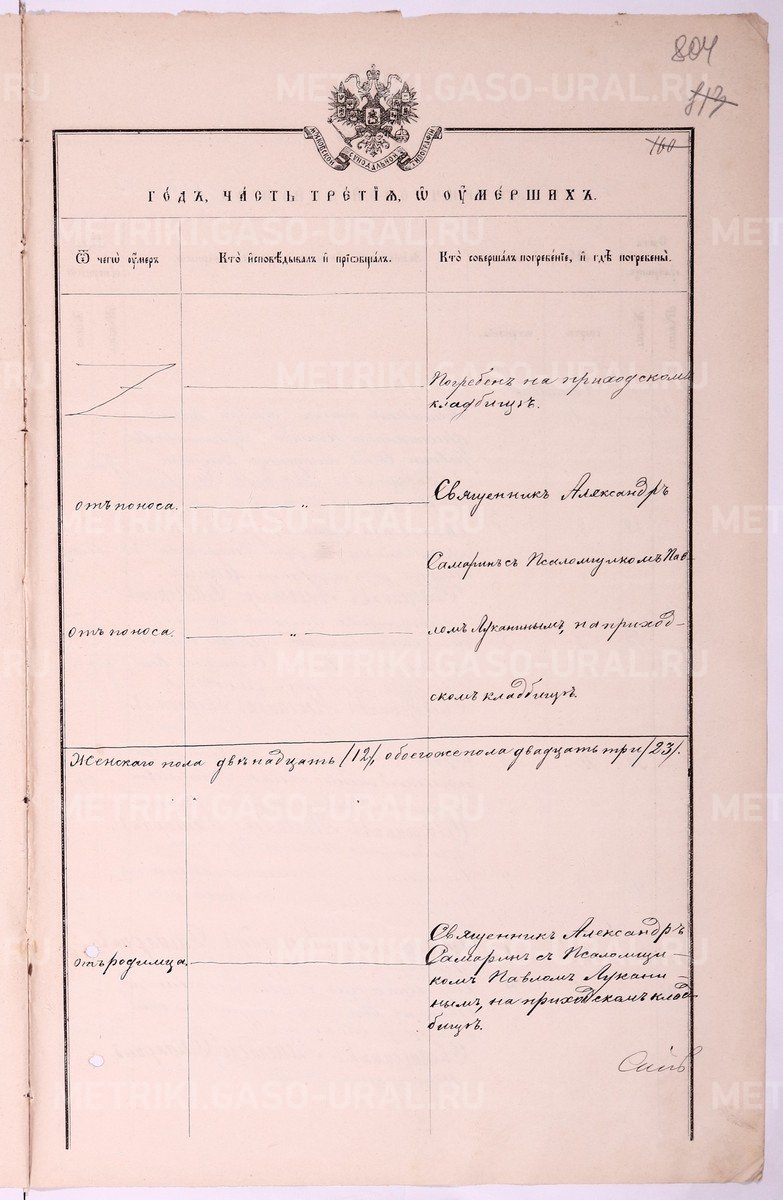 804
112
160
МОСКОВСКОЙ СѴНОДАЛЬНОЙ ТИПОГРАФІИ
ГО́ДЪ, ЧА́СТЬ ТРЕ́ТІЯ, Ѡ҆ ОУ҆МЕ́РШИХЪ.
Ѿ чегѡ̀ оу҆́меръ
Кто̀ и҆сповѣ́дывалъ и҆ прїѡбща́лъ.
Кто̀ соверша́лъ погребе́нїе, и҆ гдѣ̀ погребены̀.
Погребенъ на приходскомъ
кладбищѣ.
отъ поноса.
Священникъ Александръ
Самаринъ съ Псаломщикомъ Пав-
отъ поноса.
ломъ Луканинымъ, на приход-
скомъ кладбищѣ.
Женскаго пола двѣнадцать /12/, обоего же пола двадцать три /23/.
отъ родимца.
Священникъ Александръ
Самаринъ съ Псаломщи-
комъ Павломъ Лукани-
нымъ, на приходскомъ клад-
бищѣ.
METRIKI.GASO-URAL.RU